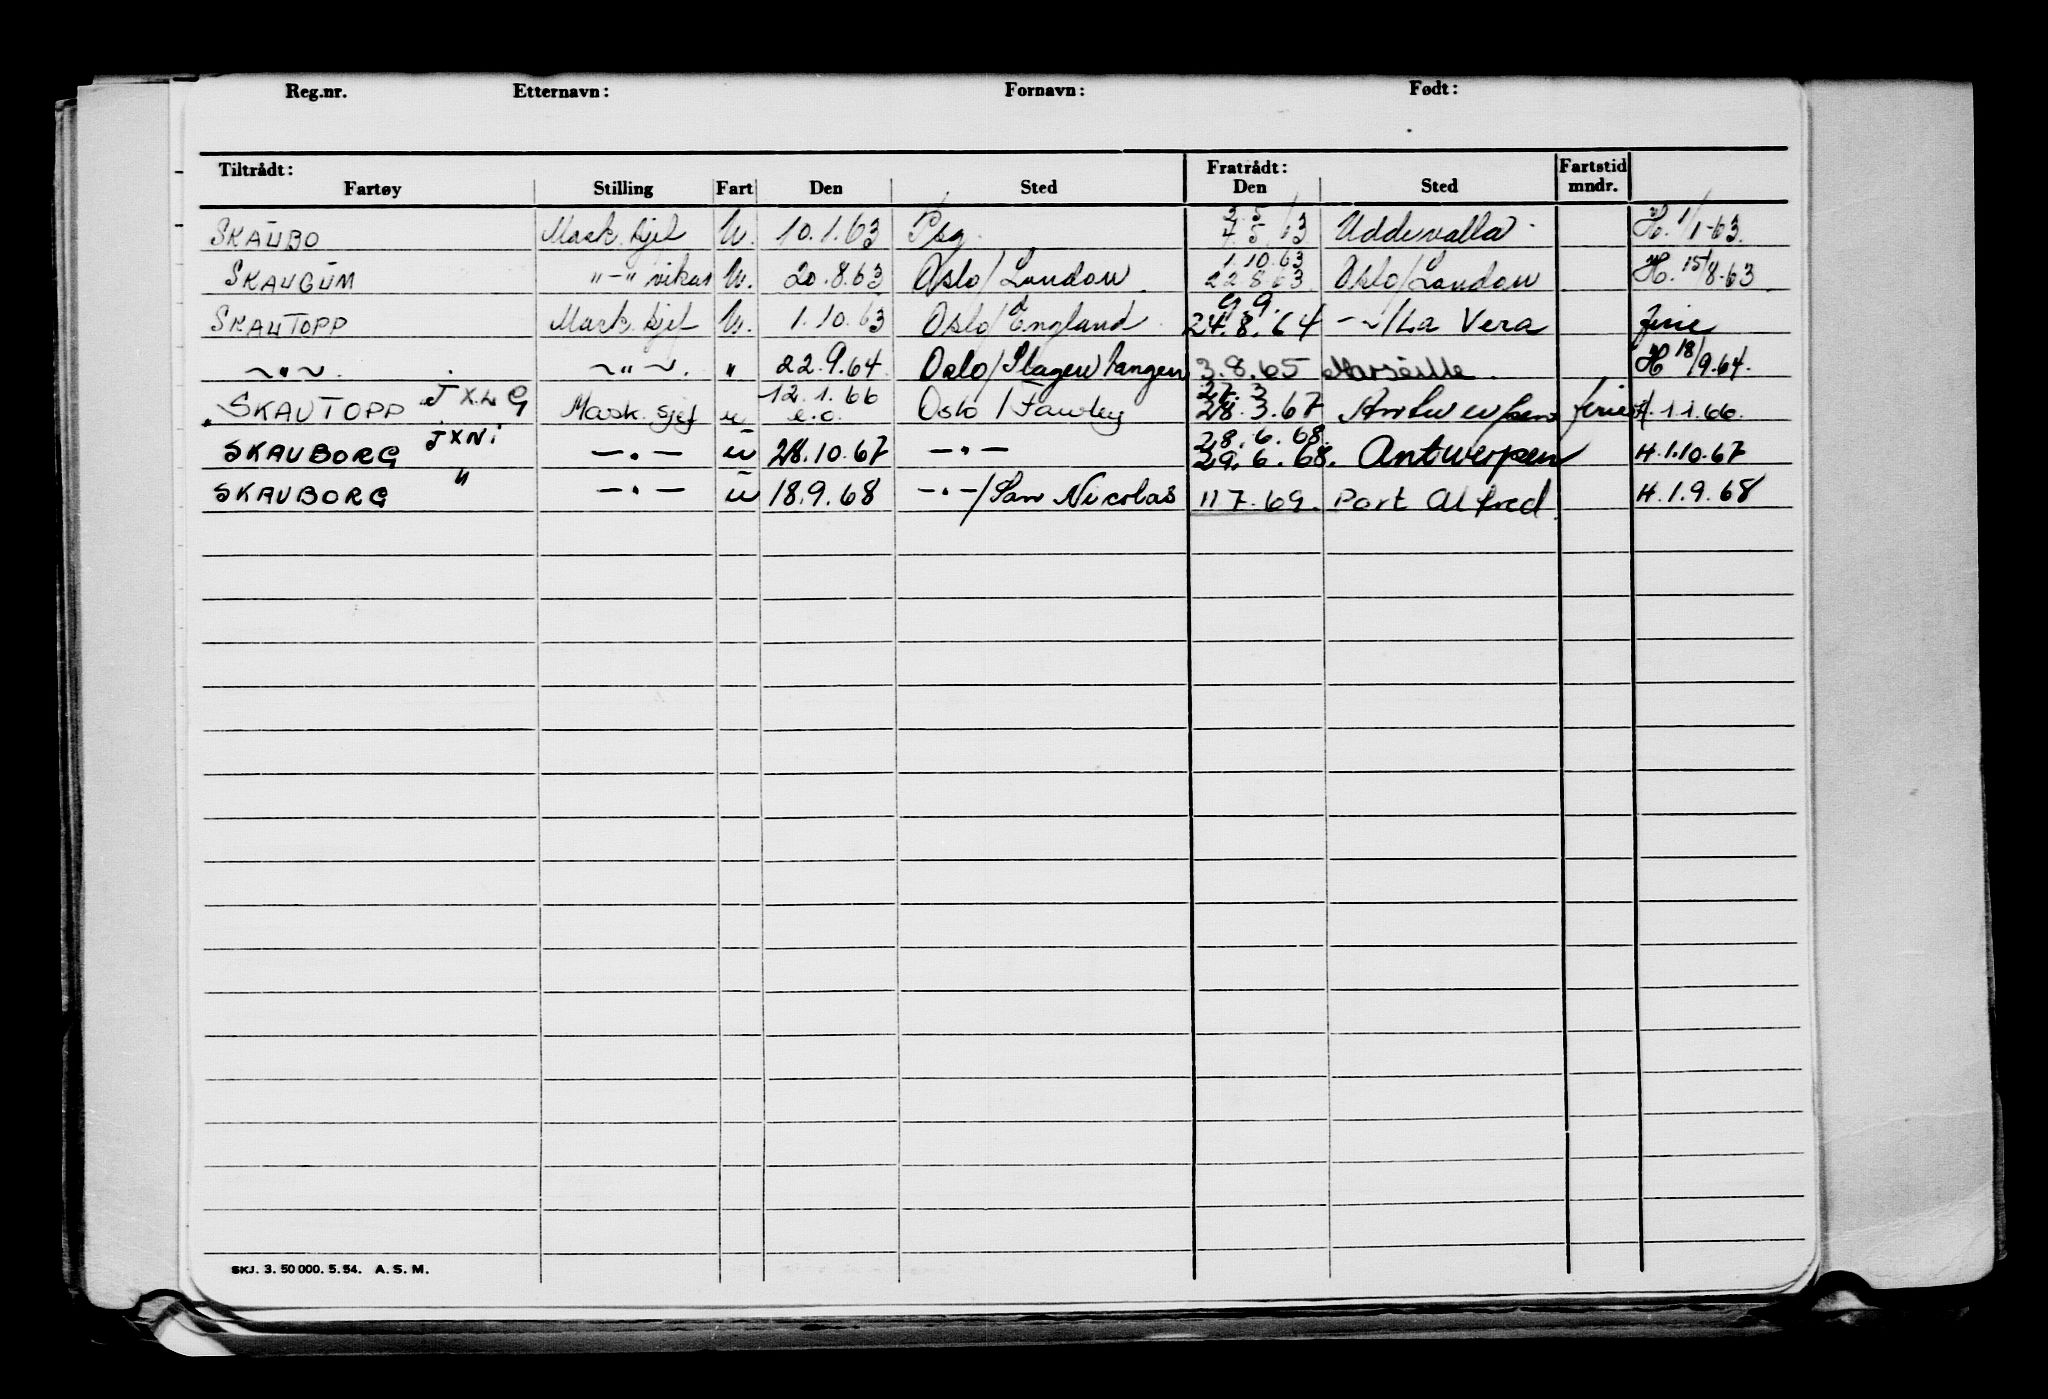 Reg.nr. Etternavn: Fornavn: Født:
Tiltrådt: Fratrådt: Fartstid
Fartøy Stilling Fart Den Sted Den Sted mndr.
SKAUBO Mask. sjef U. 10.1.63 Psg. 3.5 4.5.63 Uddevalla H. 1/1-63.
SKAUGUM "-" vikar U. 20.8.63 Oslo/London 1.10.63 22.8.63 Oslo/London H. 15/8-63
SKAUTOPP Mask. sjef U. 1.10.63 Oslo/England 9.9. 24.8.64 -~/La Vera ferie
~"~. ~"~. " 22.9.64 Oslo/Slagentangen 3.8.65 Marseille. H 18/9.64.
SKAUTOPP JXLG Mask. sjef u 12.1.66 e.o. Oslo/Fawley 27.3 28.3.67 Antwerpen ferie H. 1.1.66.
SKAUBORG JXNI —"— u 28.10.67 —"— 28.6.68. 29.6.68. Antwerpen H.1.10.67
SKAUBORG " —"— u 18.9.68 —"—/San Nicolas 11.7.69. Port Alfred. H.1.9.68
SKJ. 3. 50 000. 5. 54. A. S. M.